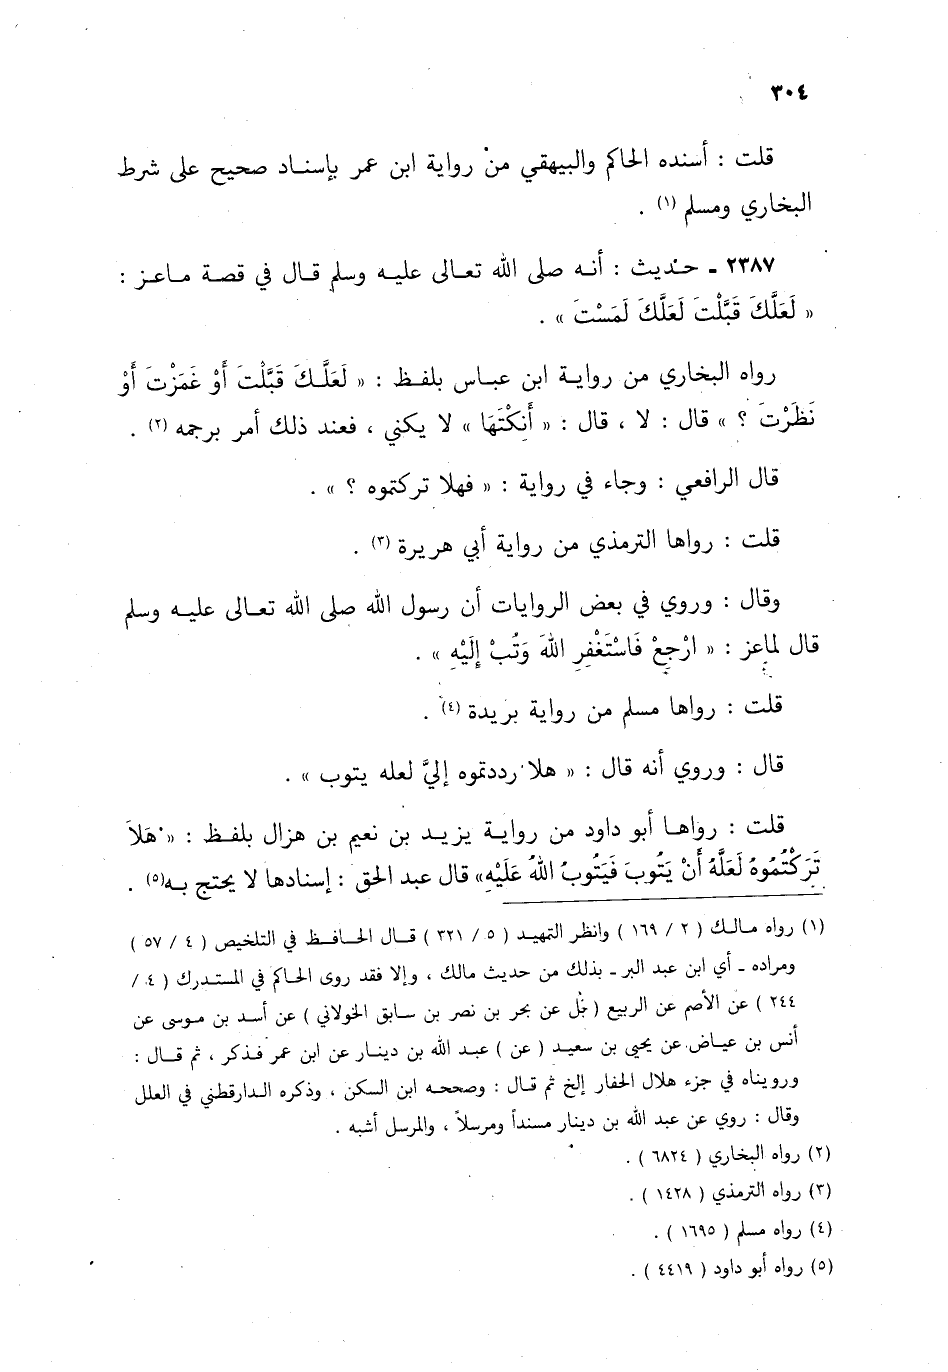 ٣٠٤
قلت : أسنده الحاكم والبيهقي من رواية ابن عمر بإسناد صحيح على شرط
البخاري ومسلم (١) .
٢٣٨٧ - حديث : أنه صلى الله تعالى عليه وسلم قال في قصة ماعز :
« لَعَلَّكَ قَبَّلْتَ لَعَلَّكَ لَمَسْتَ » .
رواه البخاري من رواية ابن عباس بلفظ : « لَعَلَّكَ قَبَّلْتَ أَوْ غَمَزْتَ أَوْ
نَظَرْتَ ؟ » قال : لا ، قال : « أَنِكْتَهَا » لا يكني ، فعند ذلك أمر برجمه (٢) .
قال الرافعي : وجاء في رواية : « فهلا تركتموه ؟ » .
قلت : رواها الترمذي من رواية أبي هريرة (٣) .
وقال : وروي في بعض الروايات أن رسول الله صلى الله تعالى عليه وسلم
قال لماعز : « ارْجِعْ فَاسْتَغْفِرِ اللهَ وَتُبْ إِلَيْهِ » .
قلت : رواها مسلم من رواية بريدة (٤) .
قال : وروي أنه قال : « هلا رددتموه إليَّ لعله يتوب » .
قلت : رواها أبو داود من رواية يزيد بن نعيم بن هزال بلفظ : « هَلاَ
تَرَكْتُمُوهُ لَعَلَّهُ أَنْ يَتُوبَ فَيَتُوبُ اللهُ عَلَيْهِ» قال عبد الحق : إسنادها لا يحتج به(٥) .
(١) رواه مالك ( ٢ / ١٦٩ ) وانظر التمهيد ( ٥ / ٣٢١ ) قال الحافظ في التلخيص ( ٤ / ٥٧ )
ومراده - أي ابن عبد البر - بذلك من حديث مالك ، وإلا فقد روى الحاكم في المستدرك ( ٤ /
٢٤٤ ) عن الأصم عن الربيع ( بل عن بحر بن نصر بن سابق الخولاني ) عن أسد بن موسى عن
أنس بن عياض عن يحيى بن سعيد ( عن ) عبد الله بن دينار عن ابن عمر فذكر ، ثم قال :
ورويناه في جزء هلال الحفار إلخ ثم قال : وصححه ابن السكن ، وذكره الدارقطني في العلل
وقال : روي عن عبد الله بن دينار مسنداً ومرسلاً ، والمرسل أشبه .
(٢) رواه البخاري ( ٦٨٢٤ ) .
(٣) رواه الترمذي ( ١٤٢٨ ) .
(٤) رواه مسلم ( ١٦٩٥ ) .
(٥) رواه أبو داود ( ٤٤١٩ ) .